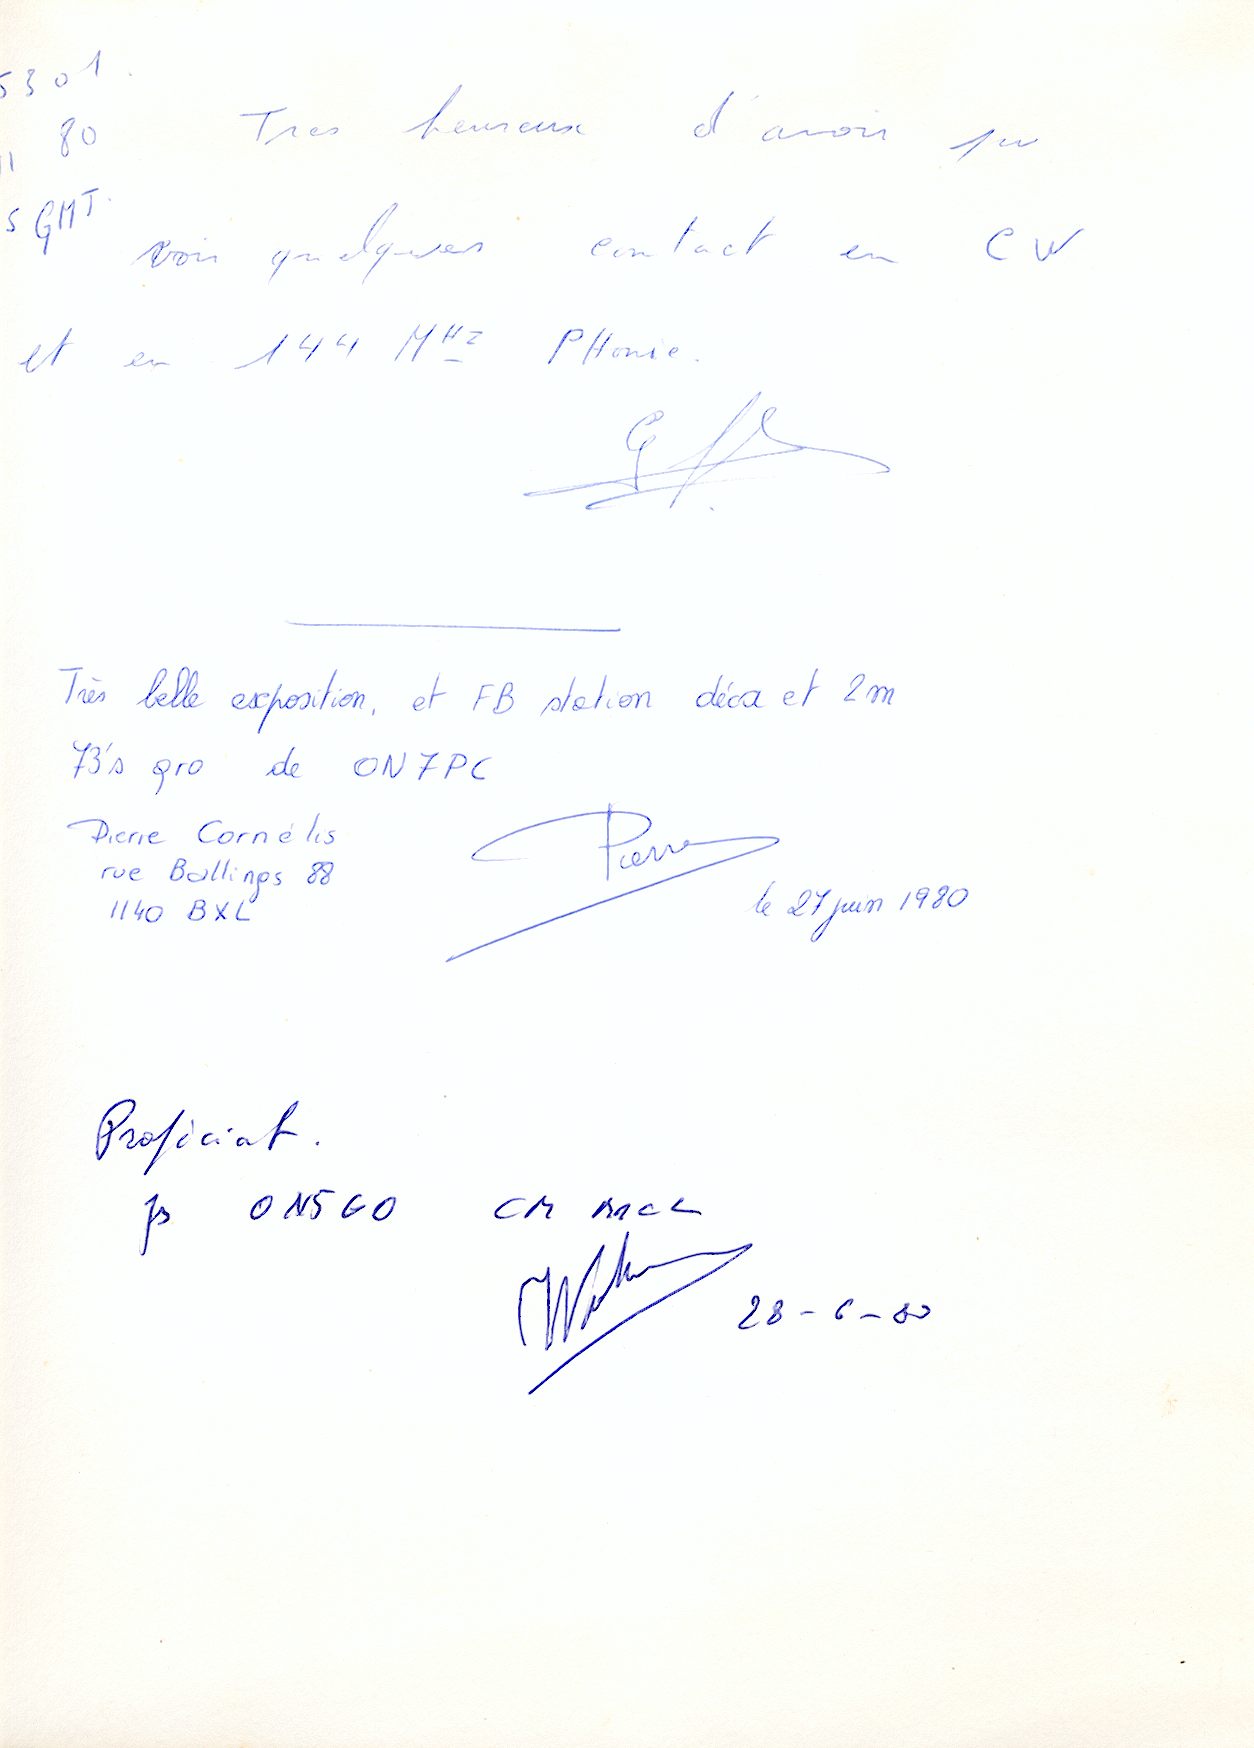 5301.
80 Tres heureux d'avoir pu
5 GMT.
voir quelques contact en CW
et en 144 MHz PHonie.
Très belle exposition, et FB station déca et 2m
73's qro de ON7PC
Pierre Cornélis
rue Ballings 88
1140 BXL
Pierre
le 27 juin 1980
Proficiat.
ON5GO CM
28-6-80